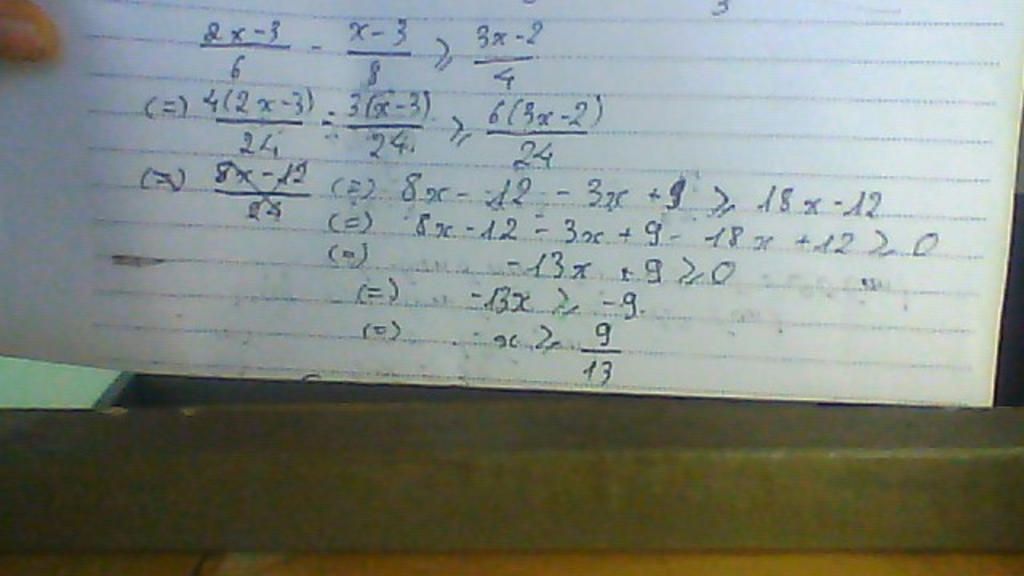 3
(2x-3)/6 - (x-3)/8 ⩾ (3x-2)/4
(=) 4(2x-3)/24 - 3(x-3)/24 ⩾ 6(3x-2)/24
(=) (8x-12)/24 (=) 8x - 12 - 3x + 9 ⩾ 18x-12
(=) 8x-12-3x+9-18x+12 ⩾ 0
(=) -13x + 9 ⩾ 0
(=) -13x ⩾ -9
(=) x ⩾ 9/13